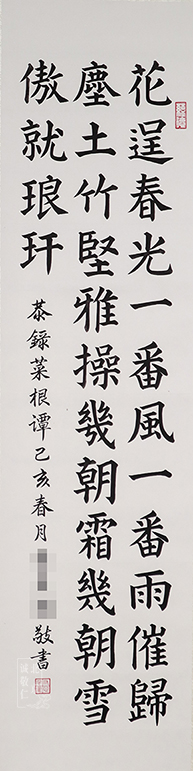 花逞春光一番風一番雨催歸
塵土竹堅雅操幾朝霜幾朝雪
傲就琅玕
恭錄菜根谭己亥春月
敬書